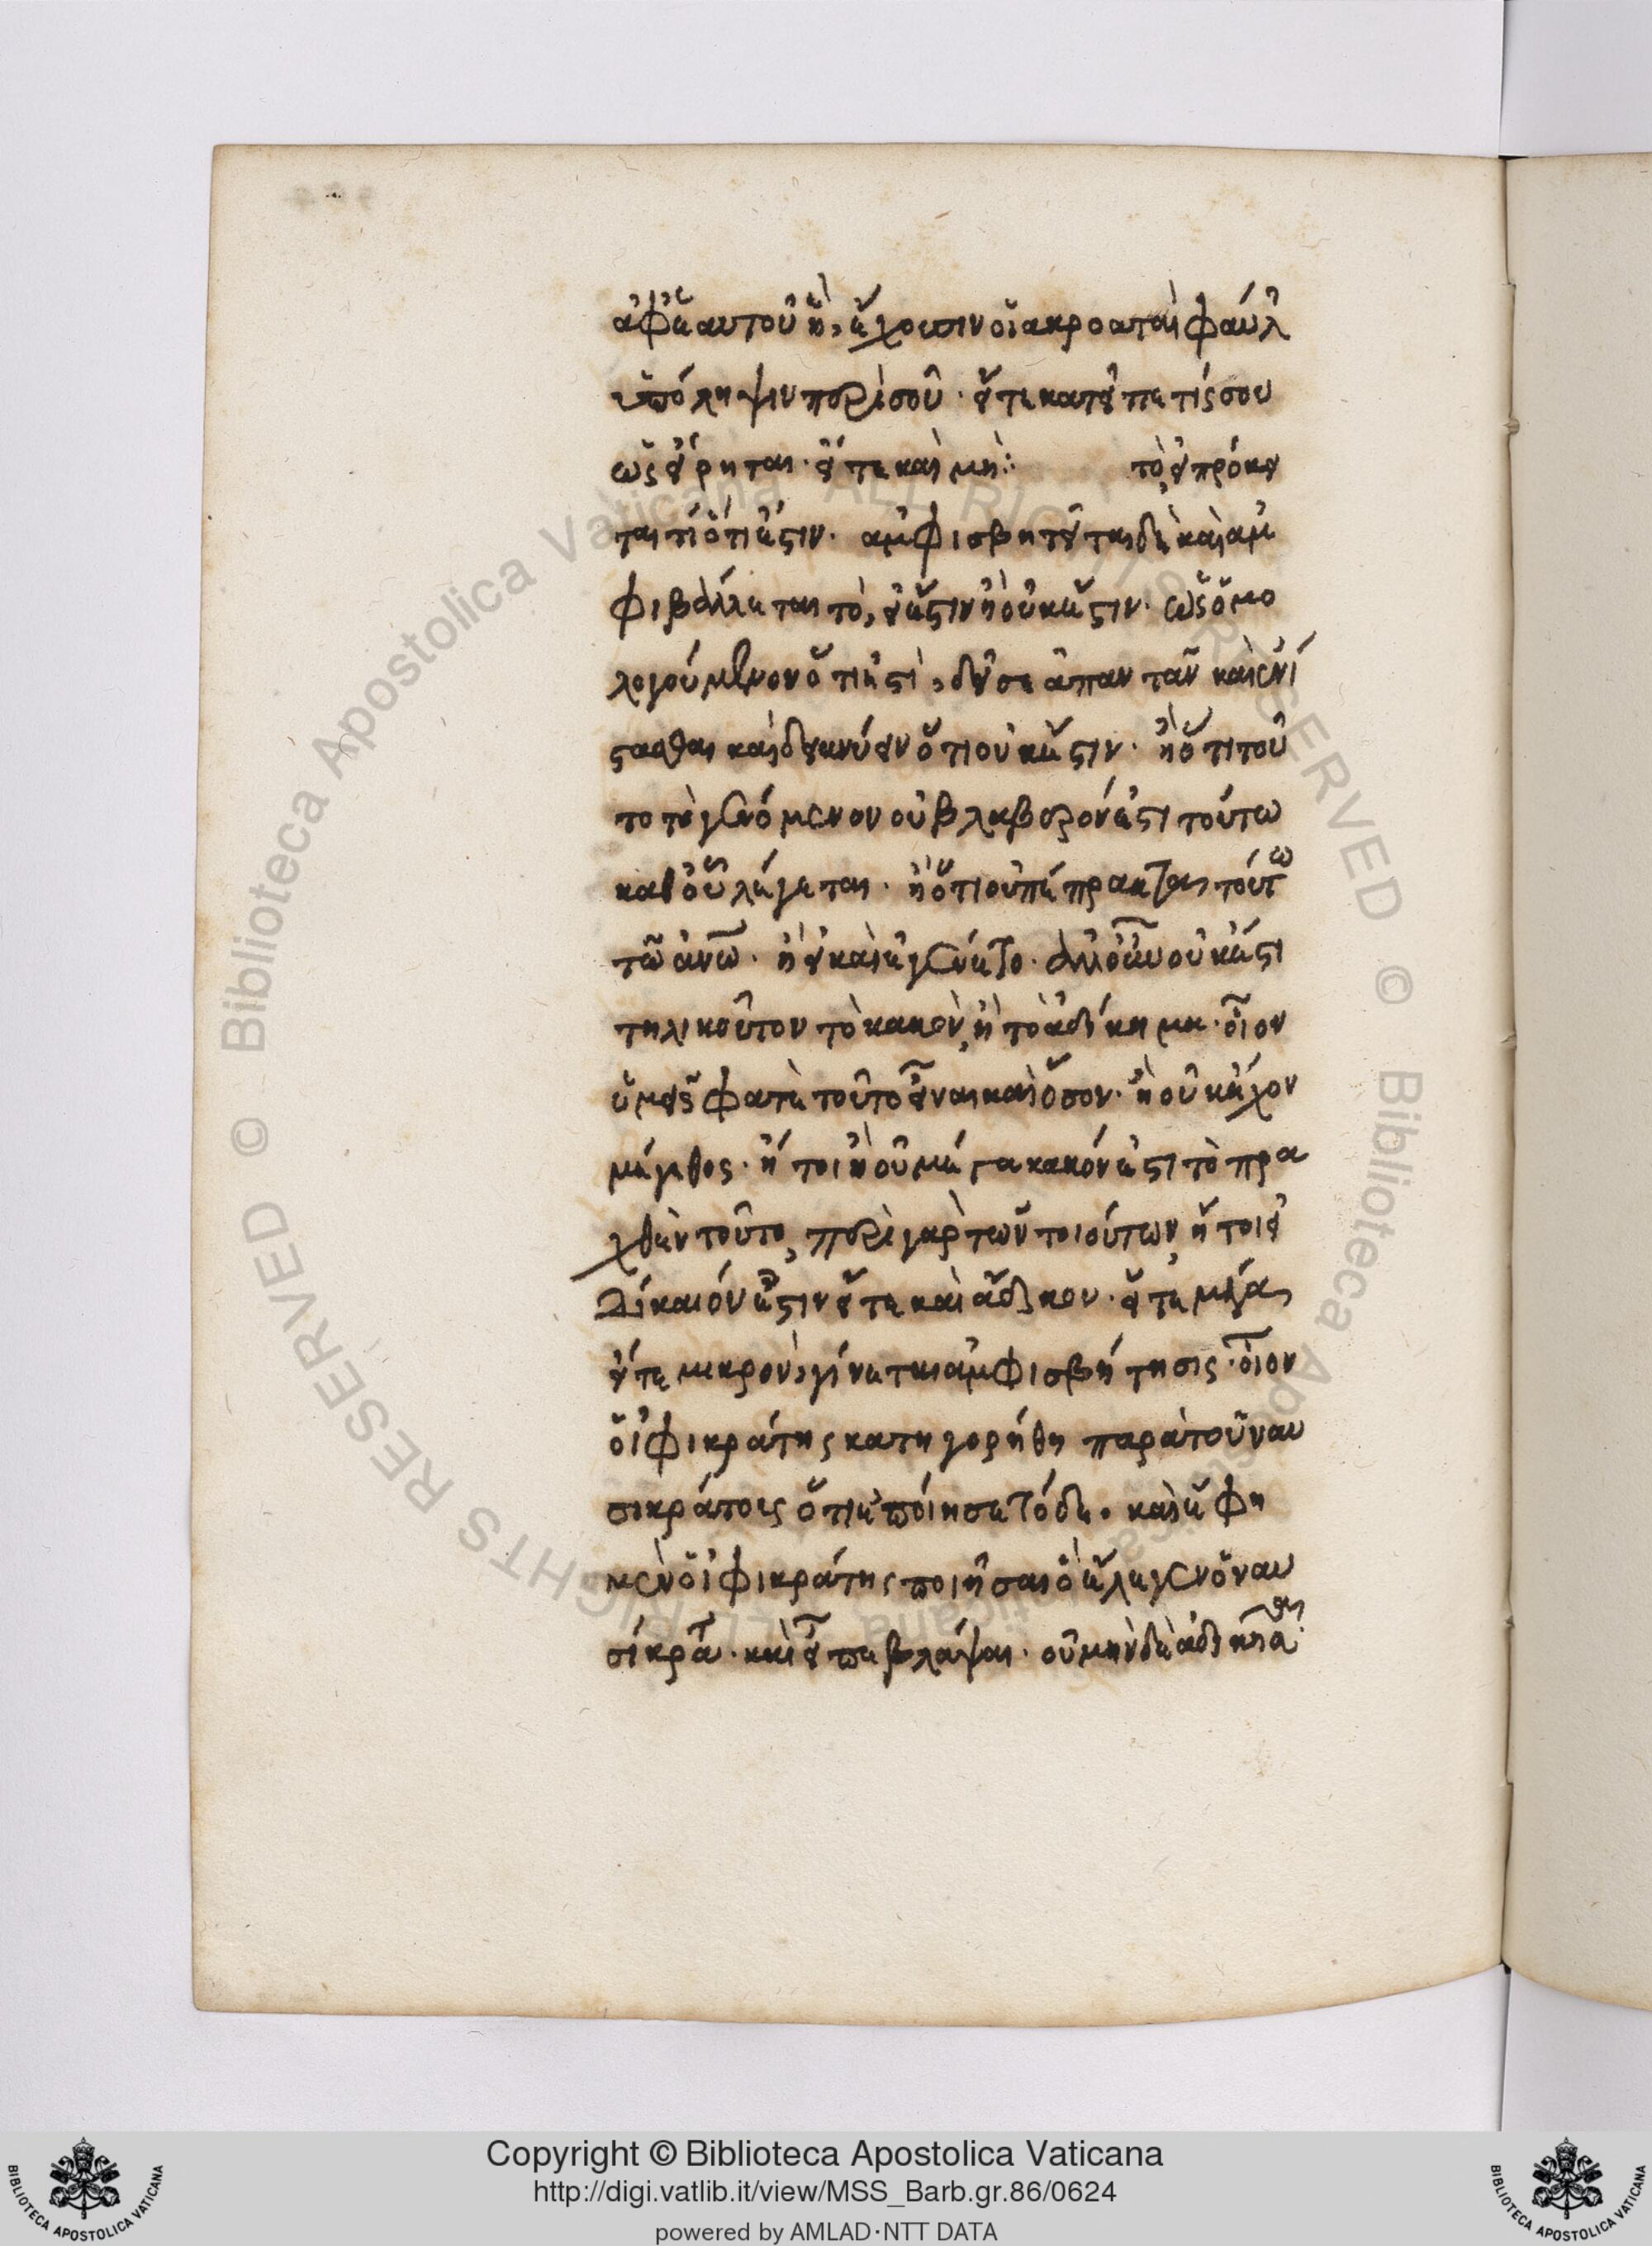 ἀφ' ἑαυτοῦ ἢν ἔχουσιν οἱ ἀκροαταὶ φαύλ
ὑπόληψιν περὶ σοῦ · εἴτε κατεῖπέ τίς σου
ὡς εἴρηται · εἴτε καὶ μή : τὸ εἰ πρόκει
ται τί ὅτι ἐστιν · ἀμφισβητεῖται δὲ καὶ ἀμ
φιβάλλεται τὸ, εἰ ἔστιν ἢ οὐκ ἔστιν · ὡς ὁμο
λογούμενον ὅτι ἐστὶ, δεῖ σε ἀπαντᾶν καὶ ἐνί
στασθαι καὶ δεικνύειν ὅτι οὐκ ἔστιν · ἢ ὅτι τοῦ
το τὸ γενόμενον οὐ βλαβερόν ἐστι τούτω
καθ' οὗ λέγεται · ἢ ὅτι οὐ πέπρακται τούτω
τῶ ἀνω · ἢ εἰ καὶ ἐγένετο · ἀλλ' οὐκ ἔστι
τηλικοῦτον τὸ κακὸν, ἢ τὸ ἀδίκημα · οἷον
ὑμεῖς φατὲ τοῦτο εἶναι καὶ ὅσον · ἢ οὐκ ἔχον
μέγεθος · ἤτοι ἢ οὐ μέγα κακόν ἐστι τὸ πρα
χθὲν τοῦτο, περὶ γὰρ τῶν τοιούτων, ἤτοι εἰ
δίκαιόν ἐστιν εἴτε καὶ ἄδικον · εἴτε μέγα
εἴτε μικρὸν, γίνεται ἀμφισβήτησις · οἷον
ὁ ἰφικράτης κατηγορήθη παρὰ τοῦ ναυ
σικράτους ὅτι ἐποίησε τόδε · καὶ ἔφη
μὲν ὁ ἰφικράτης ποιῆσαι ὃ ἔλεγεν ὁ ναυ
σικράτ · καὶ εἶπε βλάψαι · οὐ μὴν δὲ ἀδικῆσαι